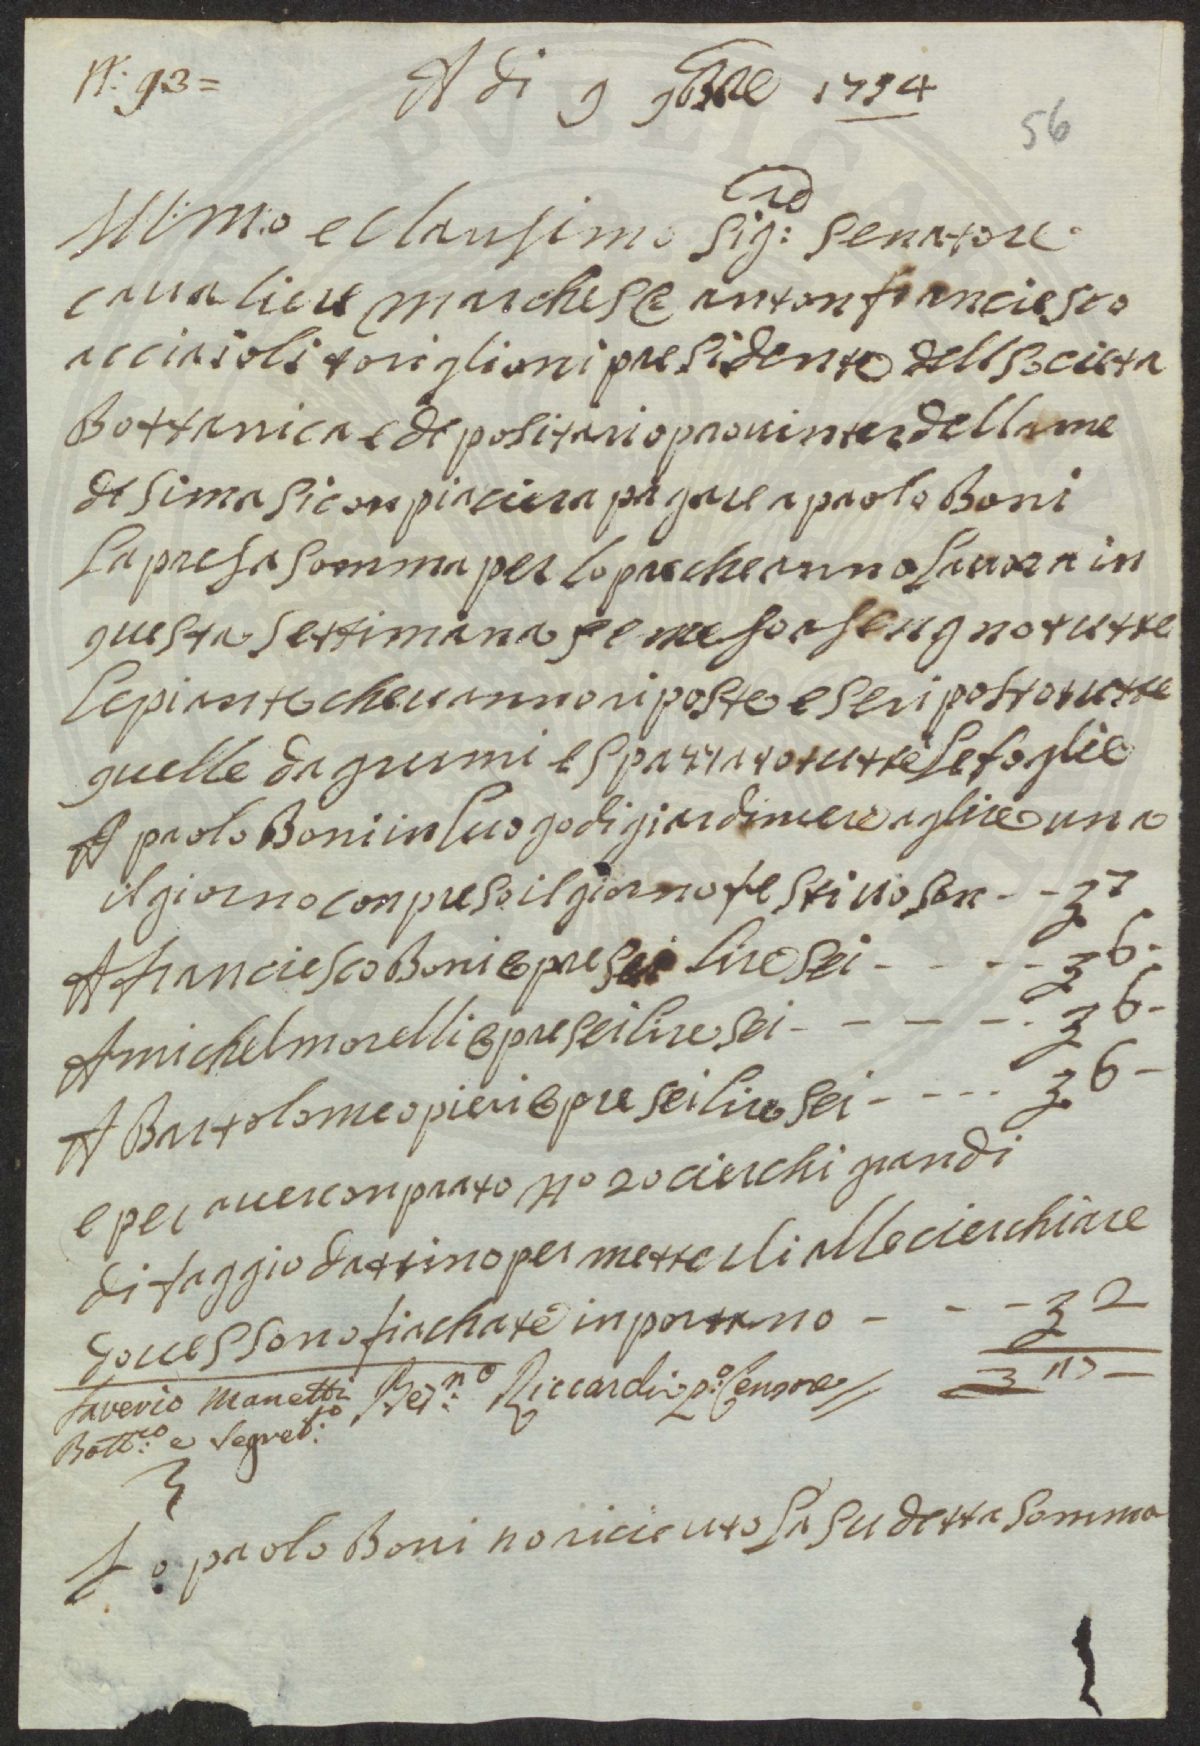 N.: 93 =
A di 9 9bre 1754
56
Ill:mo e Clarisimo Sig: Senatore
caualiere marchese anton franciesco
acciaioli toriglioni presidente dell Societa
Bottanica e depositario prouinter della me
desima si conpiaciera pagare a paolo Boni
la presa somma per lopre che anno lauora in
questa settimana se mesoasengno tutte
le piante che uanno riposte e se riposto tutte
quelle da grumi e spazzato tutte le foglie
A paolo Boni in luogo di giardiniere a lire una
il giorno conpreso il giorno festiuo son - - - 7
A franciesco Boni opre sei lire sei - - - - 6 -
A michel morelli opre sei lire sei - - - - - 6 -
A Bartolomeo pieri opre sei lire sei - - - - 6 -
e per auer conprato no 20 cierchi grandi
di faggio da ttino per metterli alle cierchiare
doue ssono fiachate inportano - - - - 2
Saverio Manetti
Bott:co e Segret:io
Ber:no Riccardi p:o Censore
Io paolo Boni no ricieuto la su detta somma